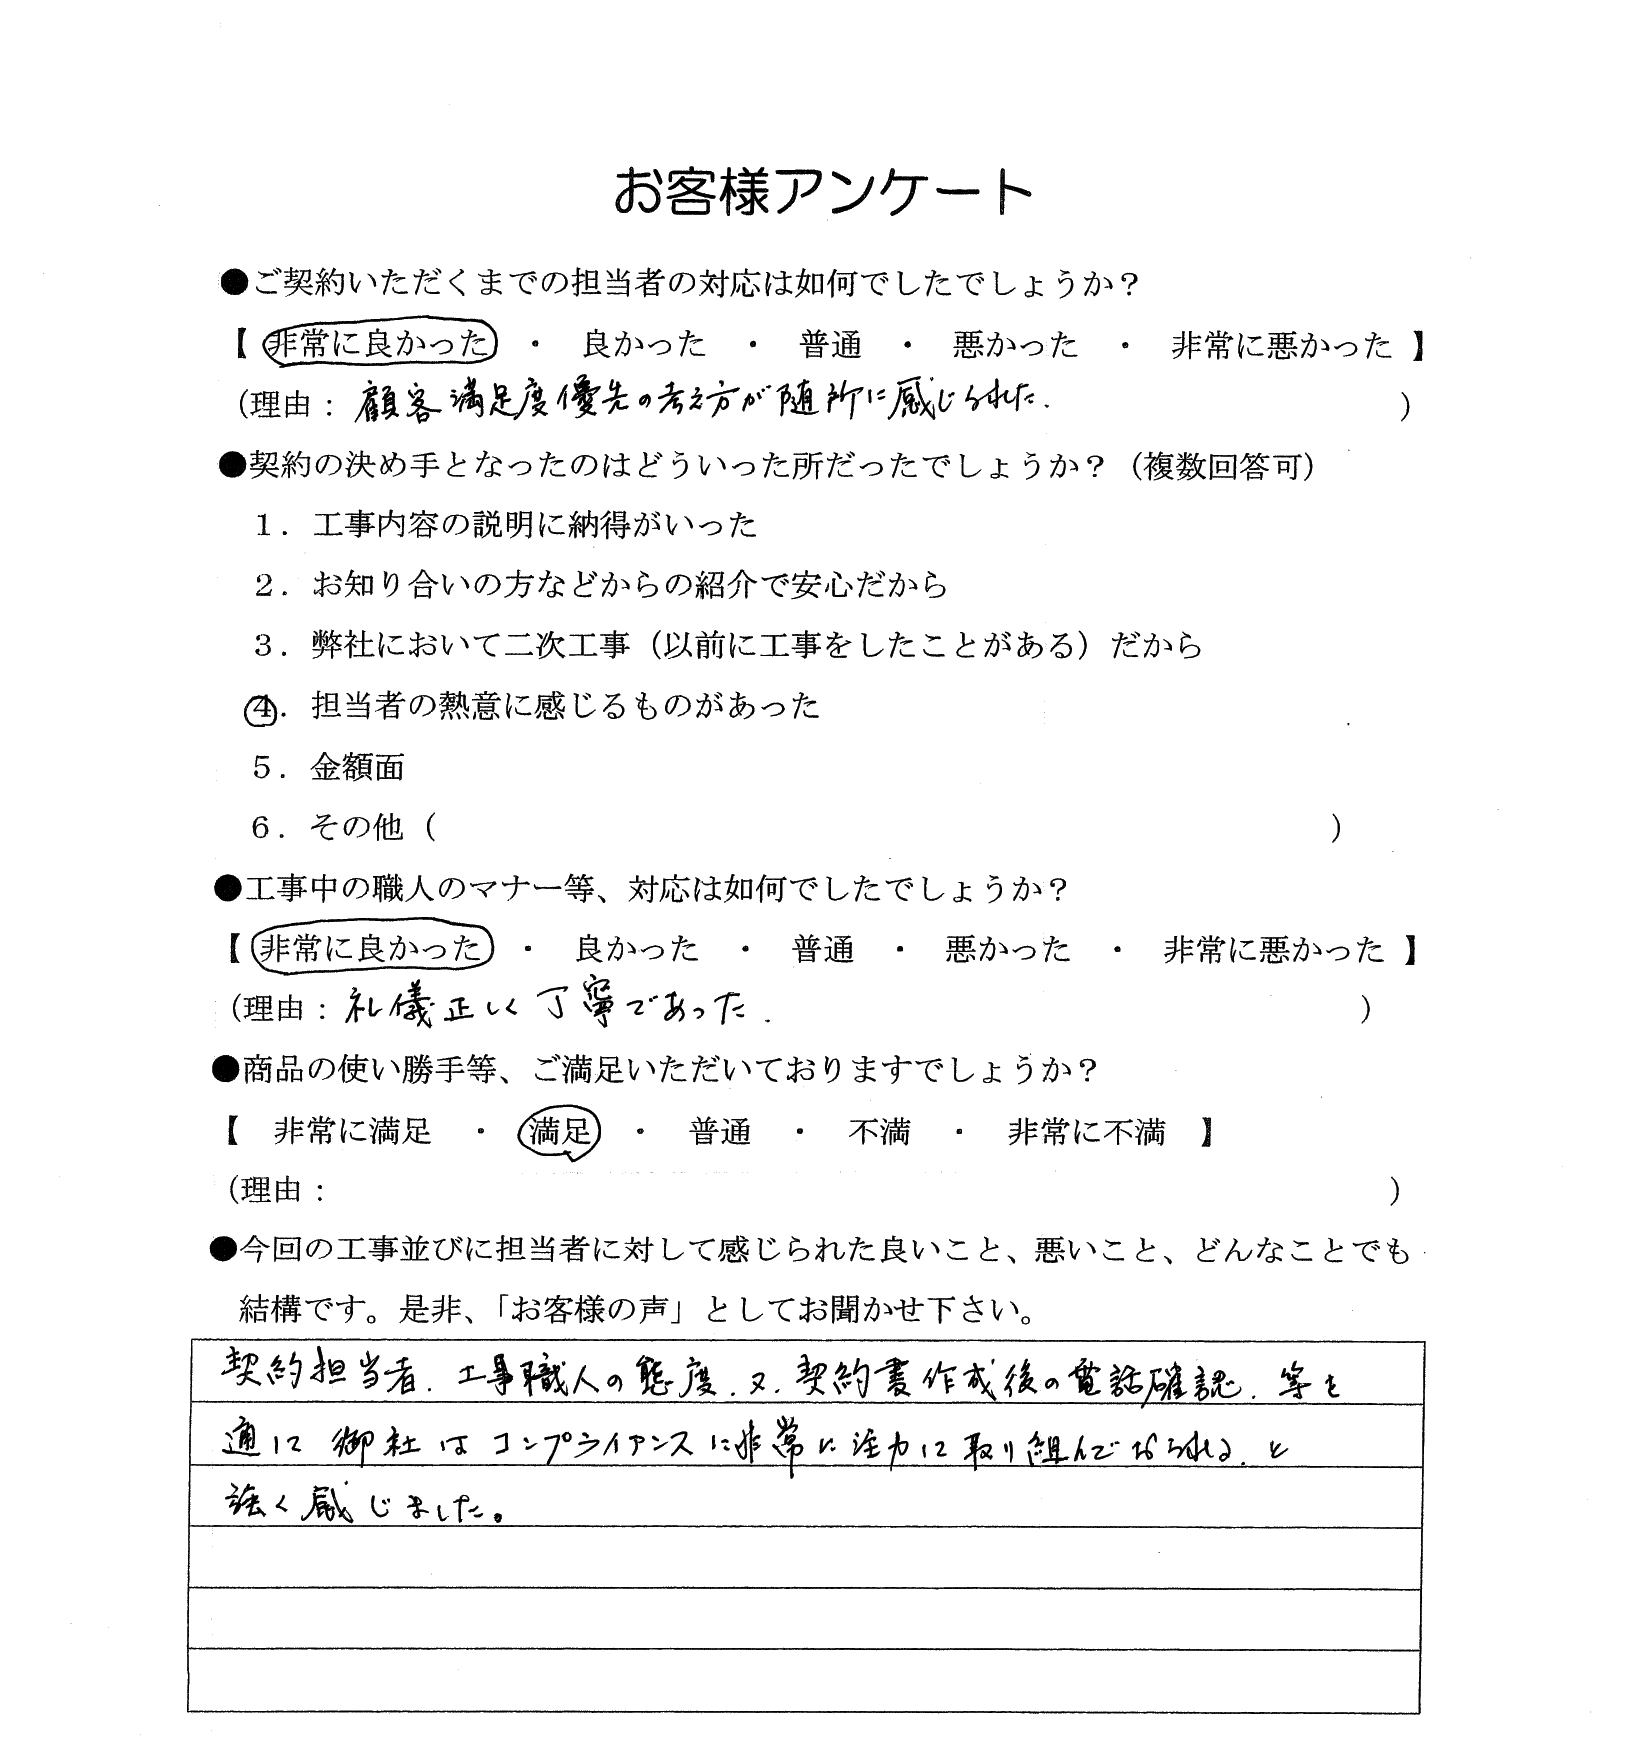 お客様アンケート
●ご契約いただくまでの担当者の対応は如何でしたでしょうか？
【 非常に良かった ・ 良かった ・ 普通 ・ 悪かった ・ 非常に悪かった 】
（理由：顧客満足度優先の考え方が随所に感じられた. ）
●契約の決め手となったのはどういった所だったでしょうか？（複数回答可）
１．工事内容の説明に納得がいった
２．お知り合いの方などからの紹介で安心だから
３．弊社において二次工事（以前に工事をしたことがある）だから
４．担当者の熱意に感じるものがあった
５．金額面
６．その他（ ）
●工事中の職人のマナー等、対応は如何でしたでしょうか？
【 非常に良かった ・ 良かった ・ 普通 ・ 悪かった ・ 非常に悪かった 】
（理由：礼儀正しく丁寧であった. ）
●商品の使い勝手等、ご満足いただいておりますでしょうか？
【 非常に満足 ・ 満足 ・ 普通 ・ 不満 ・ 非常に不満 】
（理由： ）
●今回の工事並びに担当者に対して感じられた良いこと、悪いこと、どんなことでも
結構です。是非、「お客様の声」としてお聞かせ下さい。
契約担当者. 工事職人の態度. 又. 契約書作成後の電話確認. 等を
通じて御社はコンプライアンスに非常に注力して取り組んでおられる. と
強く感じました。